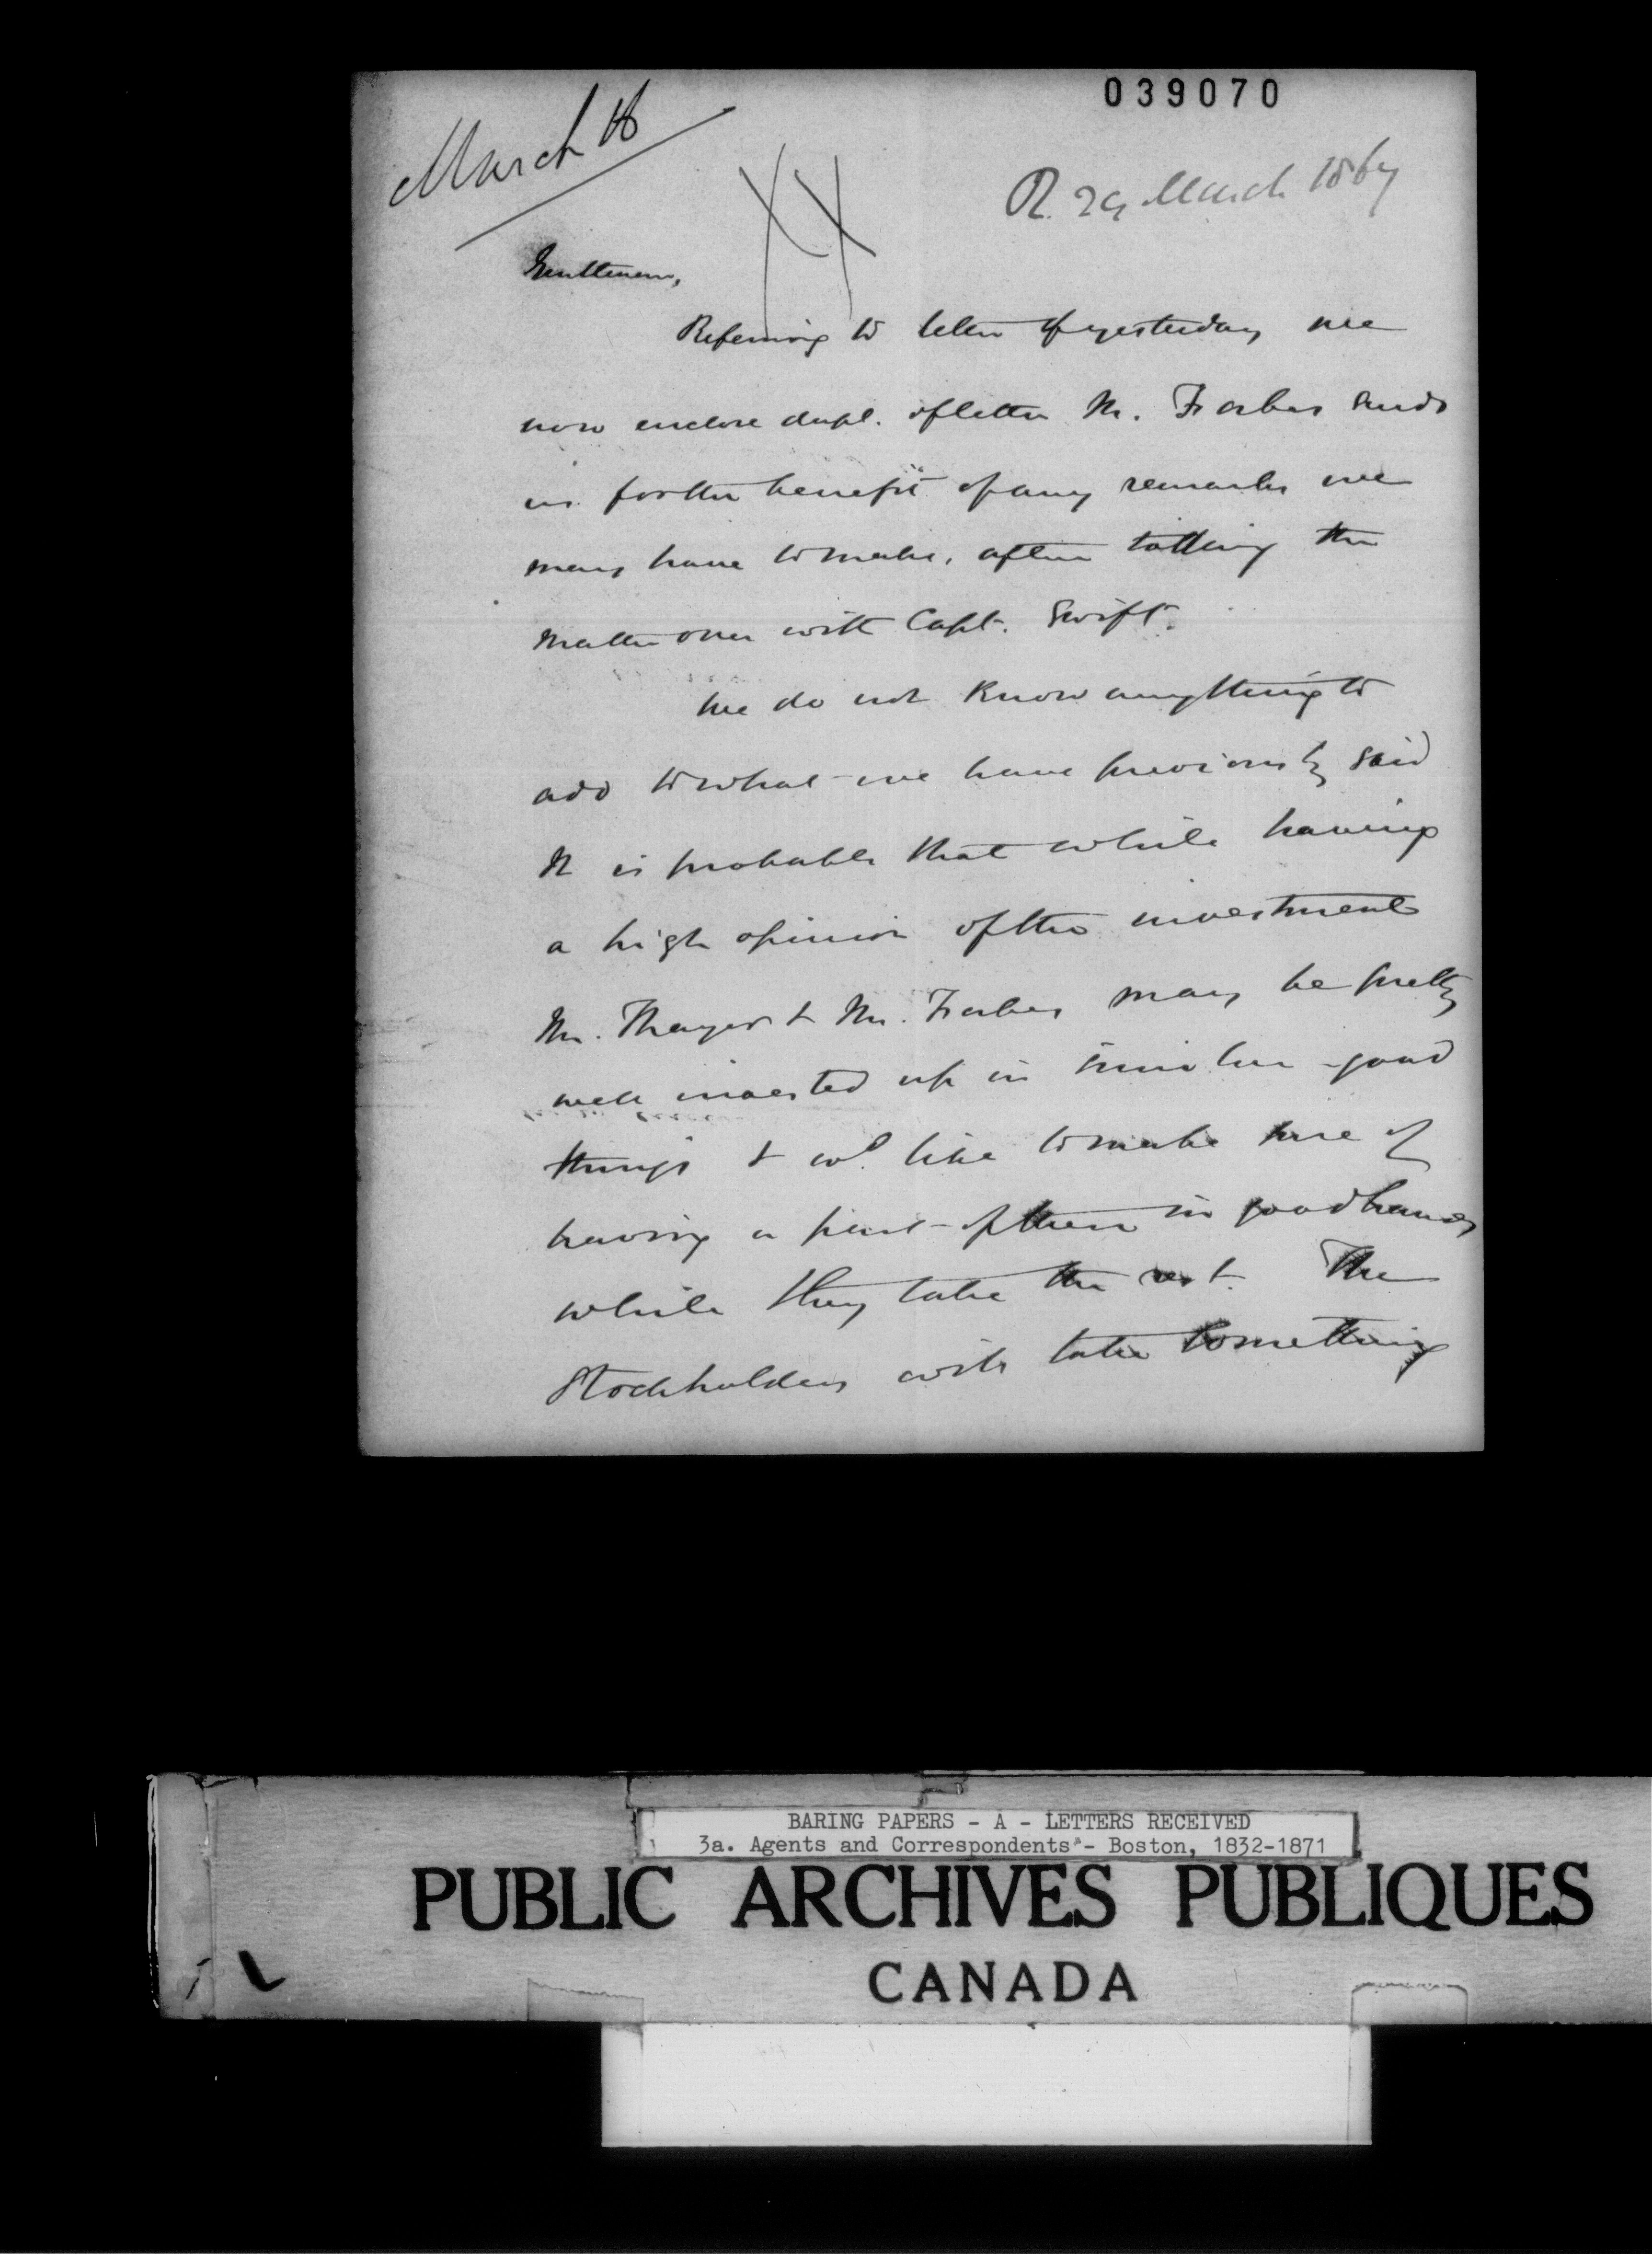 039070
March 16
R. 29 March 1867
Gentlemen,
Referring to letter of yesterday we
now enclose dupl. of letter Mr. Forbes sends
us for the benefit of any remarks we
may have to make, after talking the
matter over with Capt. Swift.
We do not know anything to
add to what we have previously said
It is probable that while having
a high opinion of the investment
Mr. Thayer & Mr. Forbes may be pretty
well invested up in similar good
things & wd. like to make sure of
having a part of them in good hands
while they take the rest. The
Stockholders will take something
BARING PAPERS - A - LETTERS RECEIVED
3a. Agents and Correspondents - Boston, 1832-1871
PUBLIC ARCHIVES PUBLIQUES
CANADA